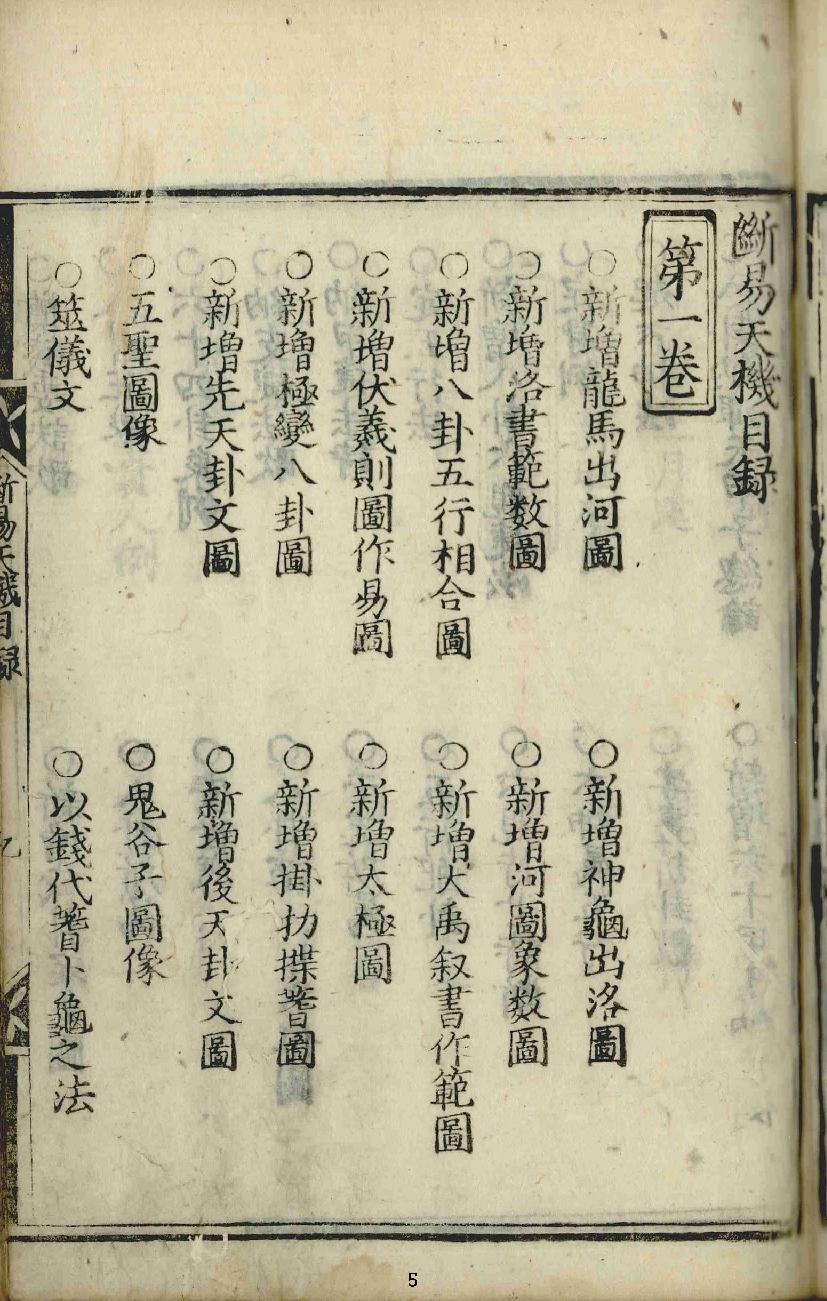 斷易天機目録
第一卷
○新增龍馬出河圖 ○新增神龜出洛圖
○新增洛書範数圖 ○新增河圖象数圖
○新增八卦五行相合圖 ○新增大禹叙書作範圖
○新增伏羲則圖作易圖 ○新增太極圖
○新增極變八卦圖 ○新增掛扐揲蓍圖
○新增先天卦文圖 ○新增後天卦文圖
○五聖圖像 ○鬼谷子圖像
○筮儀文 ○以錢代蓍卜龜之法
断易天機目録
5